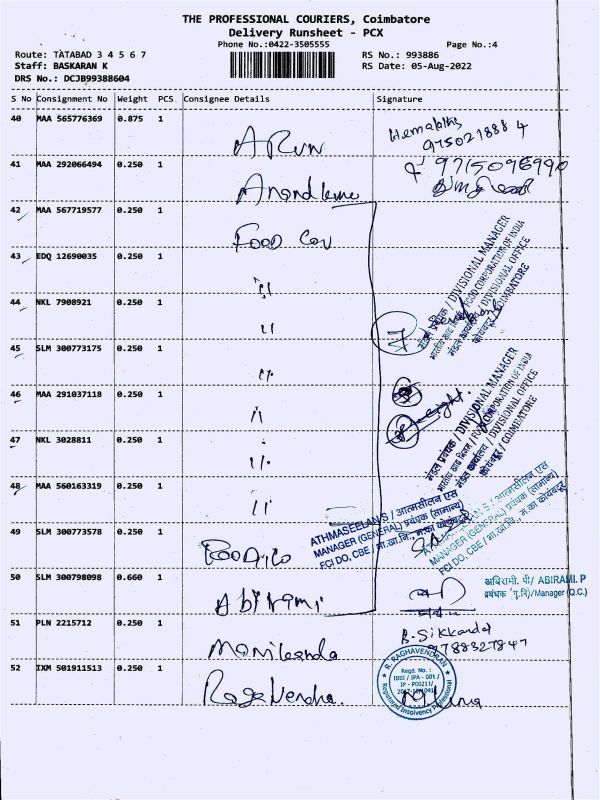 THE PROFESSIONAL COURIERS, Coimbatore
Delivery Runsheet - PCX
Phone No.:0422-3505555
Page No.:4
Route: TATABAD 3 4 5 6 7
RS No.: 993886
Staff: BASKARAN K
RS Date: 05-Aug-2022
DRS No.: DCJB99388604
S No Consignment No Weight PCS Consignee Details Signature
40 MAA 565776369 0.875 1 ARUN
975021888 4
41 MAA 292066494 0.250 1
9715096990
42 MAA 567719577 0.250 1 FOOD
43 EDQ 12690035 0.250 1 "
44 NKL 7908921 0.250 1 "
45 SLM 300773175 0.250 1 "
46 MAA 291037118 0.250 1 "
47 NKL 3028811 0.250 1 "
48 MAA 560163319 0.250 1 "
मंडल प्रबंधक / DIVISIONAL MANAGER
भारतीय खाद्य निगम / FOOD CORPORATION OF INDIA
मंडल कार्यालय / DIVISIONAL OFFICE
कोयंबटूर / COIMBATORE
मंडल प्रबंधक / DIVISIONAL MANAGER
भारतीय खाद्य निगम / FOOD CORPORATION OF INDIA
मंडल कार्यालय / DIVISIONAL OFFICE
कोयंबटूर / COIMBATORE
ATHMASEELAN S / आत्मसीलन एस
MANAGER (GENERAL) प्रबंधक (सामान्य)
FCI DO, CBE / भा.खा.नि., म.का कोयंबटूर
ATHMASEELAN S / आत्मसीलन एस
MANAGER (GENERAL) प्रबंधक (सामान्य)
FCI DO, CBE / भा.खा.नि., म.का कोयंबटूर
49 SLM 300773578 0.250 1
50 SLM 300798098 0.660 1 Abirami
अबिरामी. पी/ ABIRAMI. P
प्रबंधक (गु.नि)/Manager (Q.C.)
51 PLN 2215712 0.250 1
B. Sikkandar
9788327847
52 IXM 501911513 0.250 1 Ragavendra.
R. RAGHAVENDRAN
Regd. No. :
IBBI / IPA - 001 /
Registered Insolvency Professional